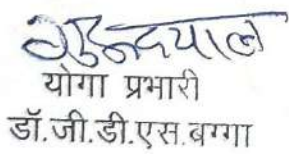 गुरूदयाल
योगा प्रभारी
डॉ.जी.डी.एस.बग्गा